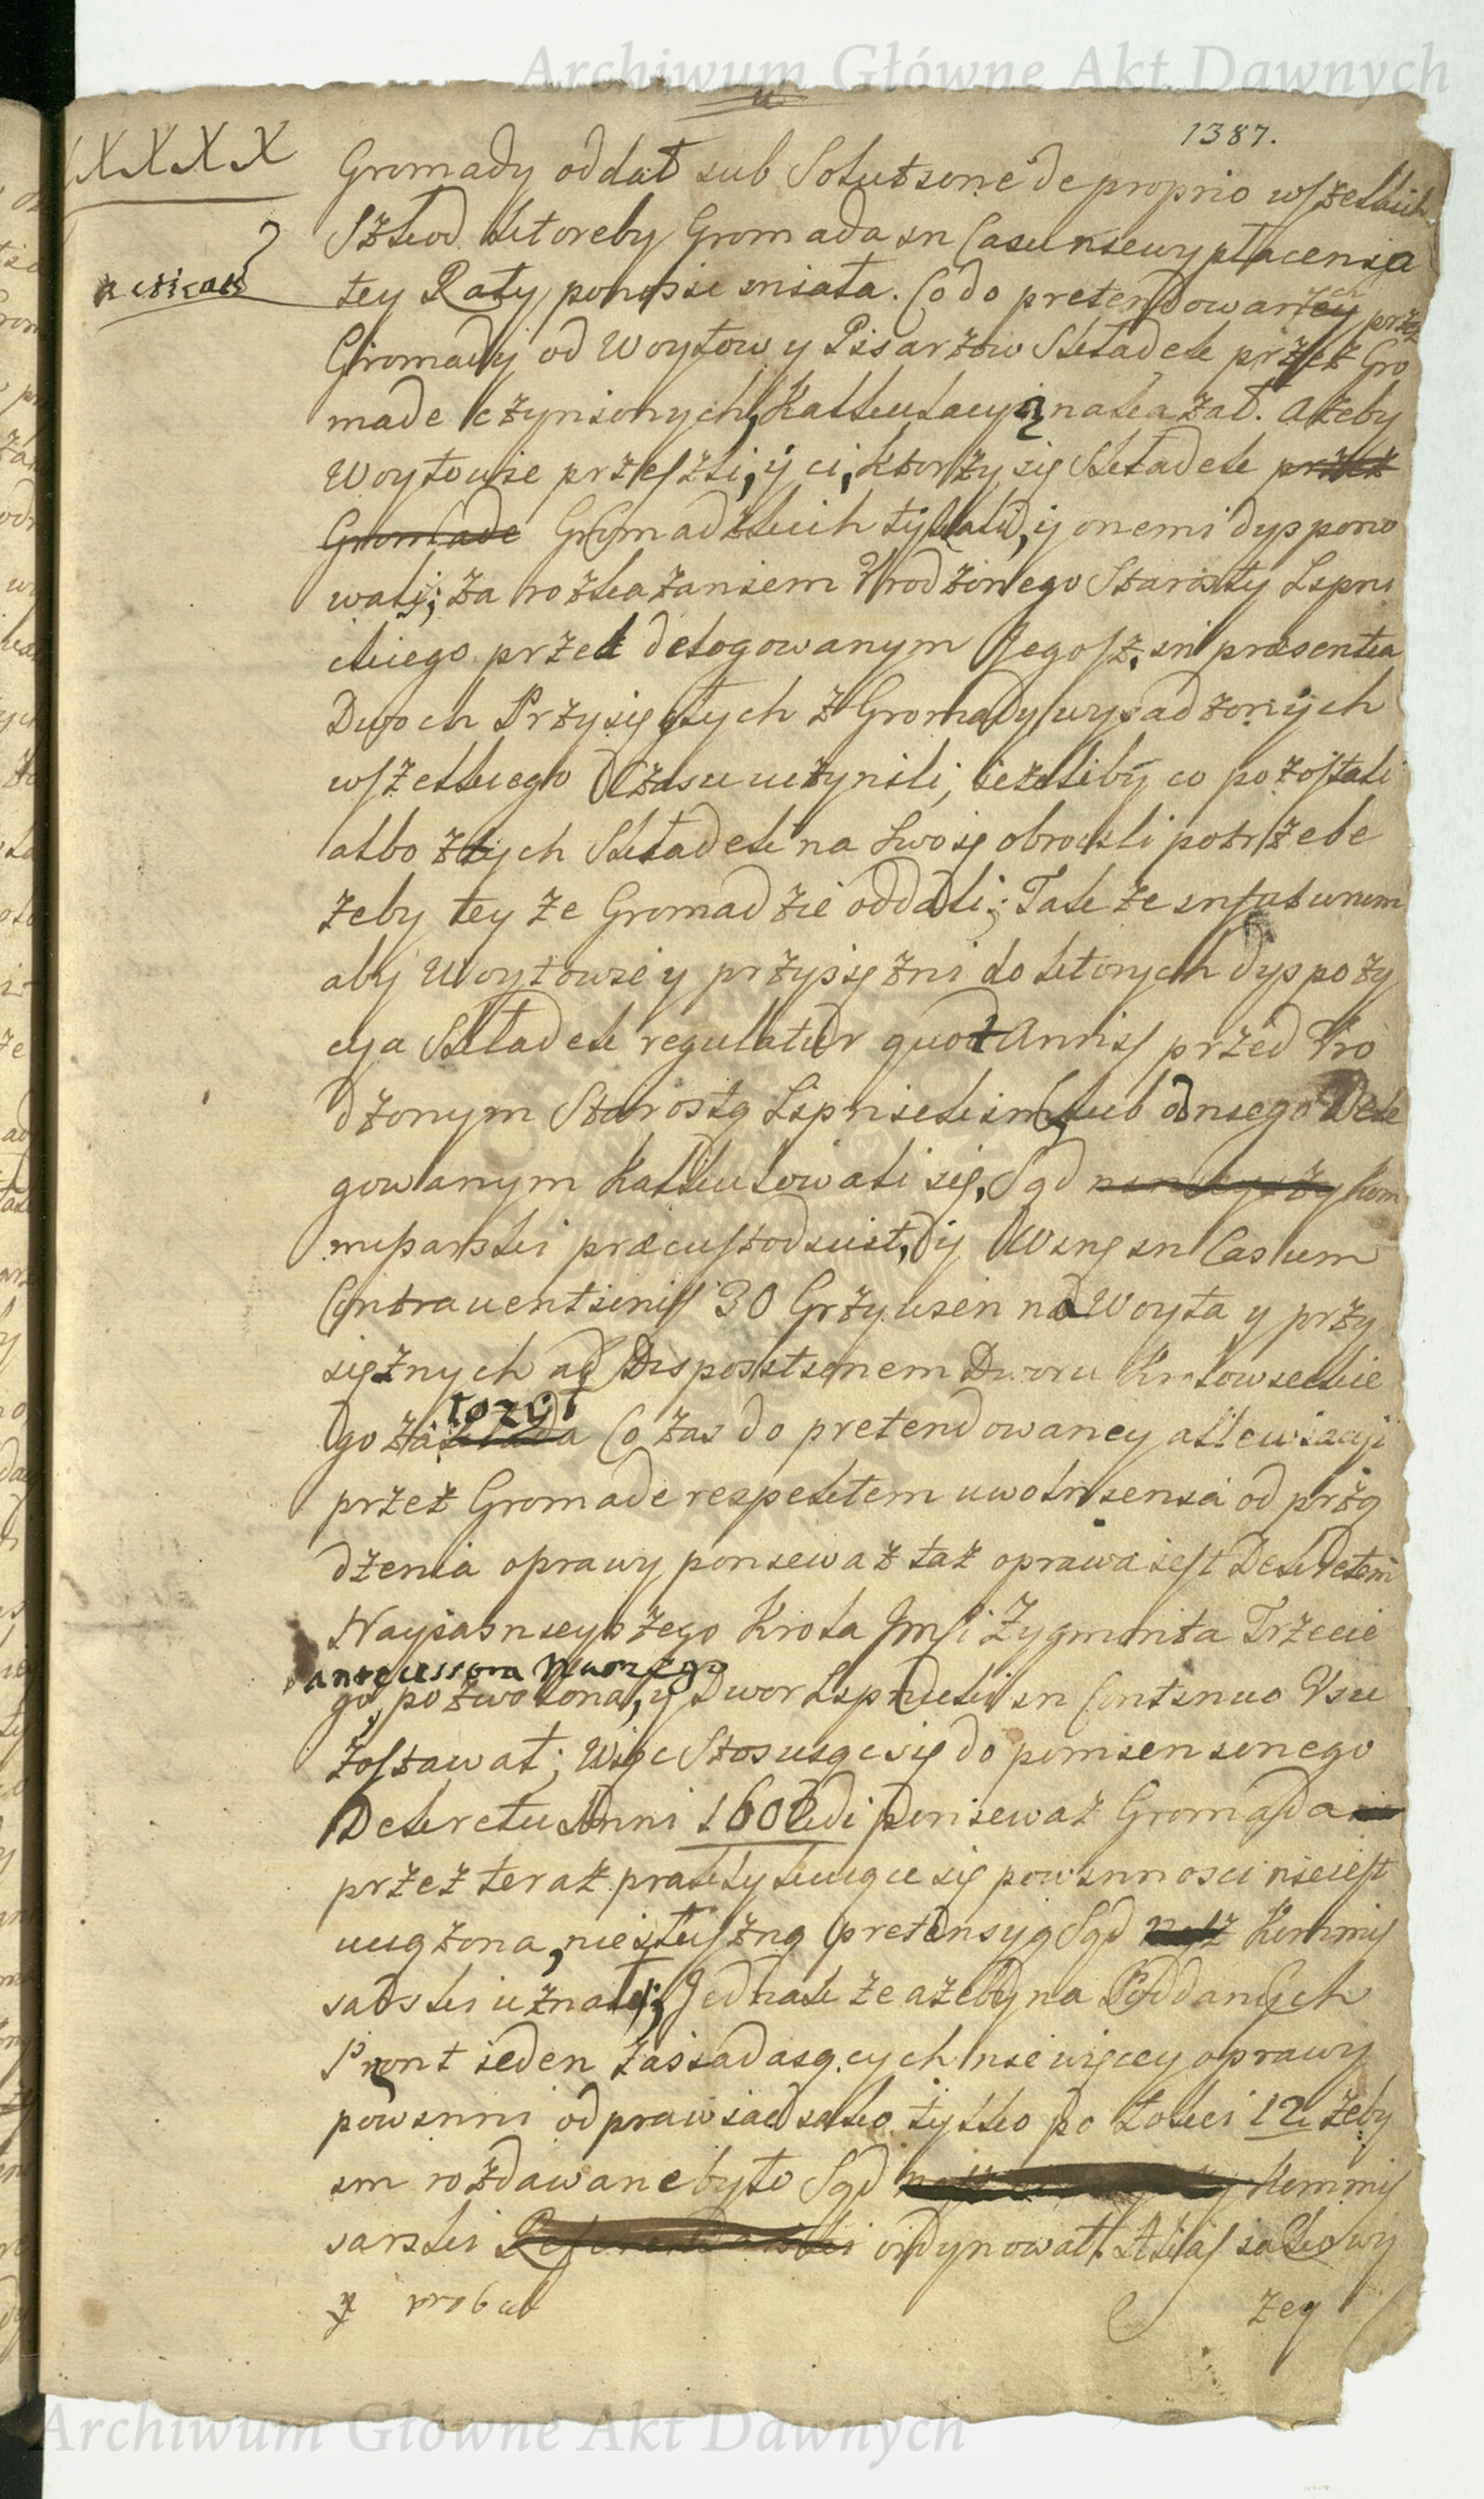 Archiwum Główne Akt Dawnych
1387.
XXXX
Gromady oddał sub Solutione de proprio wszelkich
Szkod ktoreby Gromada in Casu niewypłacenia
tey Raty ponosic miała. Co do pretendowaney przez
Gromady od Woytow y Pisarzow Składek przez Gro
made czynionych, Kalkulacyą nakazał. Ażeby
Woytowie przeszli, y ci, ktorzy się Składek przez
Gromade Gromadzkich tykali, y onemi dyspono
wali; za rozkazaniem Urodzonego Starosty Lipni
ckiego przed delegowanym Jegosz. in præsentia
Dwoch Przysięgłych z Gromady wysadzonych
wszelkiego Czasu uczynili, ieżeliby co pozostali
albo z tych Składek na Swoię obrocili potrzebe
żeby tey że Gromadzie oddali; Takze in futurum
aby Woytowie y przysiężni do ktorych dyspozy
cya Składek regulatur quot Annis przed Uro
dzonym Starostą Lipnickim, lub od niego Dele
gowanym Kalkulowali się, Sąd ninieyszy kom
misarski præcustodiuit, y Winę in Casum
Contrauentionis 30 Grzywien na Woyta y przy
siężnych ad Dispositionem Dworu Krolowieckie
go zakłada łożył Co zas do pretendowaney allewiacyi
przez Gromade respektem uwolnienia od przą
dzenia oprawy poniewaz taż oprawa iest Dekretem
Nayiasnieyszego Krola Jmsi Zygmunta Trzecie
antecessora Naszego
go pozwolona, y Dwor Lipnicki in Continuo Usu
zostawał; Więc Stosuiąc się do pomienionego
Dekretu Anni 1602di poniewaz Gromada
przez teraz praktykuiące się powinnosci nieiest
uciążona, niesłuszną pretensyą Sąd nasz Kommis
sarski uznał; Jednakze ażeby na Poddanych
Pront ieden zasiadaiących nie więcey oprawy
powinni odprawiac iako tylko po Łokci 12 żeby
im rozdawane było Sąd Kommis
sarski Referendarski ordynował. Alias iakowy
probat
żey
Archiwum Główne Akt Dawnych